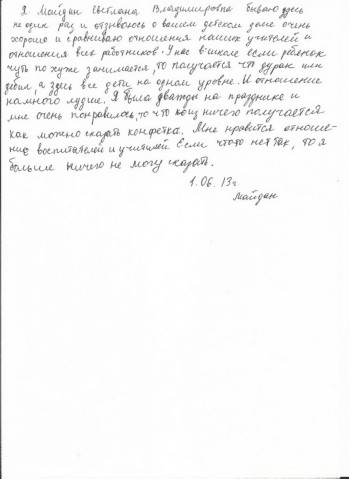 Я Майдан Светлана Владимировна бываю здесь
не один раз и отзываюсь о вашем детском доме очень
хорошо и сравниваю отношения наших учителей и
отношения всех работников. У нас в школе если ребёнок
чуть по хуже занимается, то получается что дурак или
дебил, а здесь все дети на одном уровне. И отношение
намного лудше. Я была дважды на празднике и
мне очень понравилось, то что из ничего получается
как можно сказать конфетка. Мне нравится отноше-
ние воспитателей и учителей. Если что-то не так, то я
больше ничего не могу сказать.
1.06.13г.
Майдан